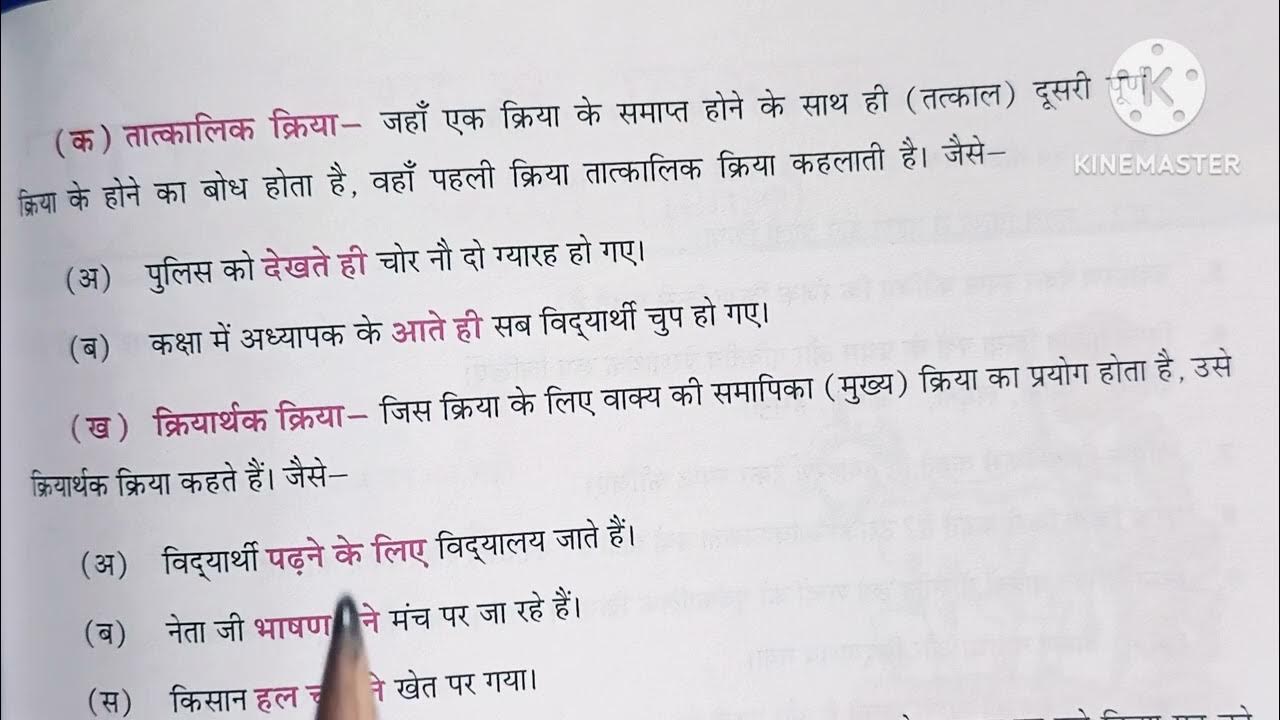 (क) तात्कालिक क्रिया– जहाँ एक क्रिया के समाप्त होने के साथ ही (तत्काल) दूसरी पूर्ण
क्रिया के होने का बोध होता है, वहाँ पहली क्रिया तात्कालिक क्रिया कहलाती है। जैसे–
KINEMASTER
(अ) पुलिस को देखते ही चोर नौ दो ग्यारह हो गए।
(ब) कक्षा में अध्यापक के आते ही सब विद्‌यार्थी चुप हो गए।
(ख) क्रियार्थक क्रिया– जिस क्रिया के लिए वाक्य की समापिका (मुख्य) क्रिया का प्रयोग होता है, उसे
क्रियार्थक क्रिया कहते हैं। जैसे–
(अ) विद्‌यार्थी पढ़ने के लिए विद्‌यालय जाते हैं।
(ब) नेता जी भाषण मंच पर जा रहे हैं।
(स) किसान हल खेत पर गया।